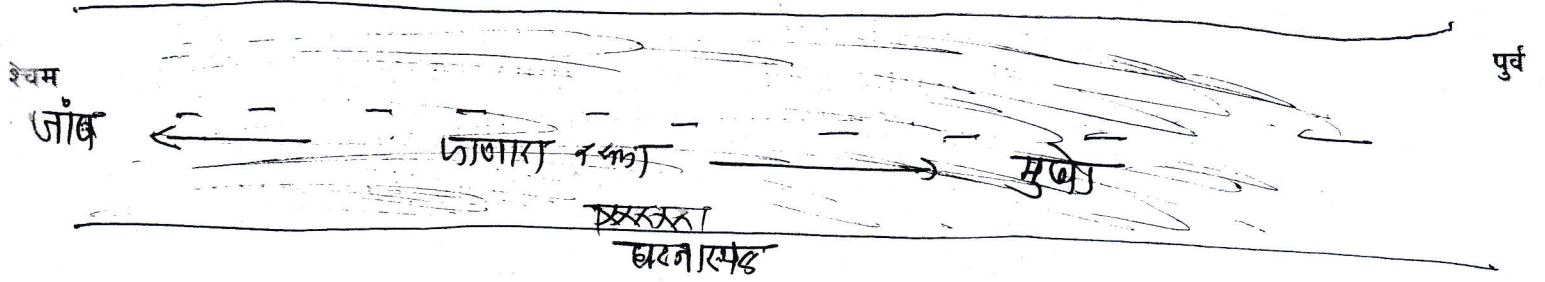 श्चिम
पुर्व
जांब
जाणारा रस्ता
मुखेड
घटनास्थळ